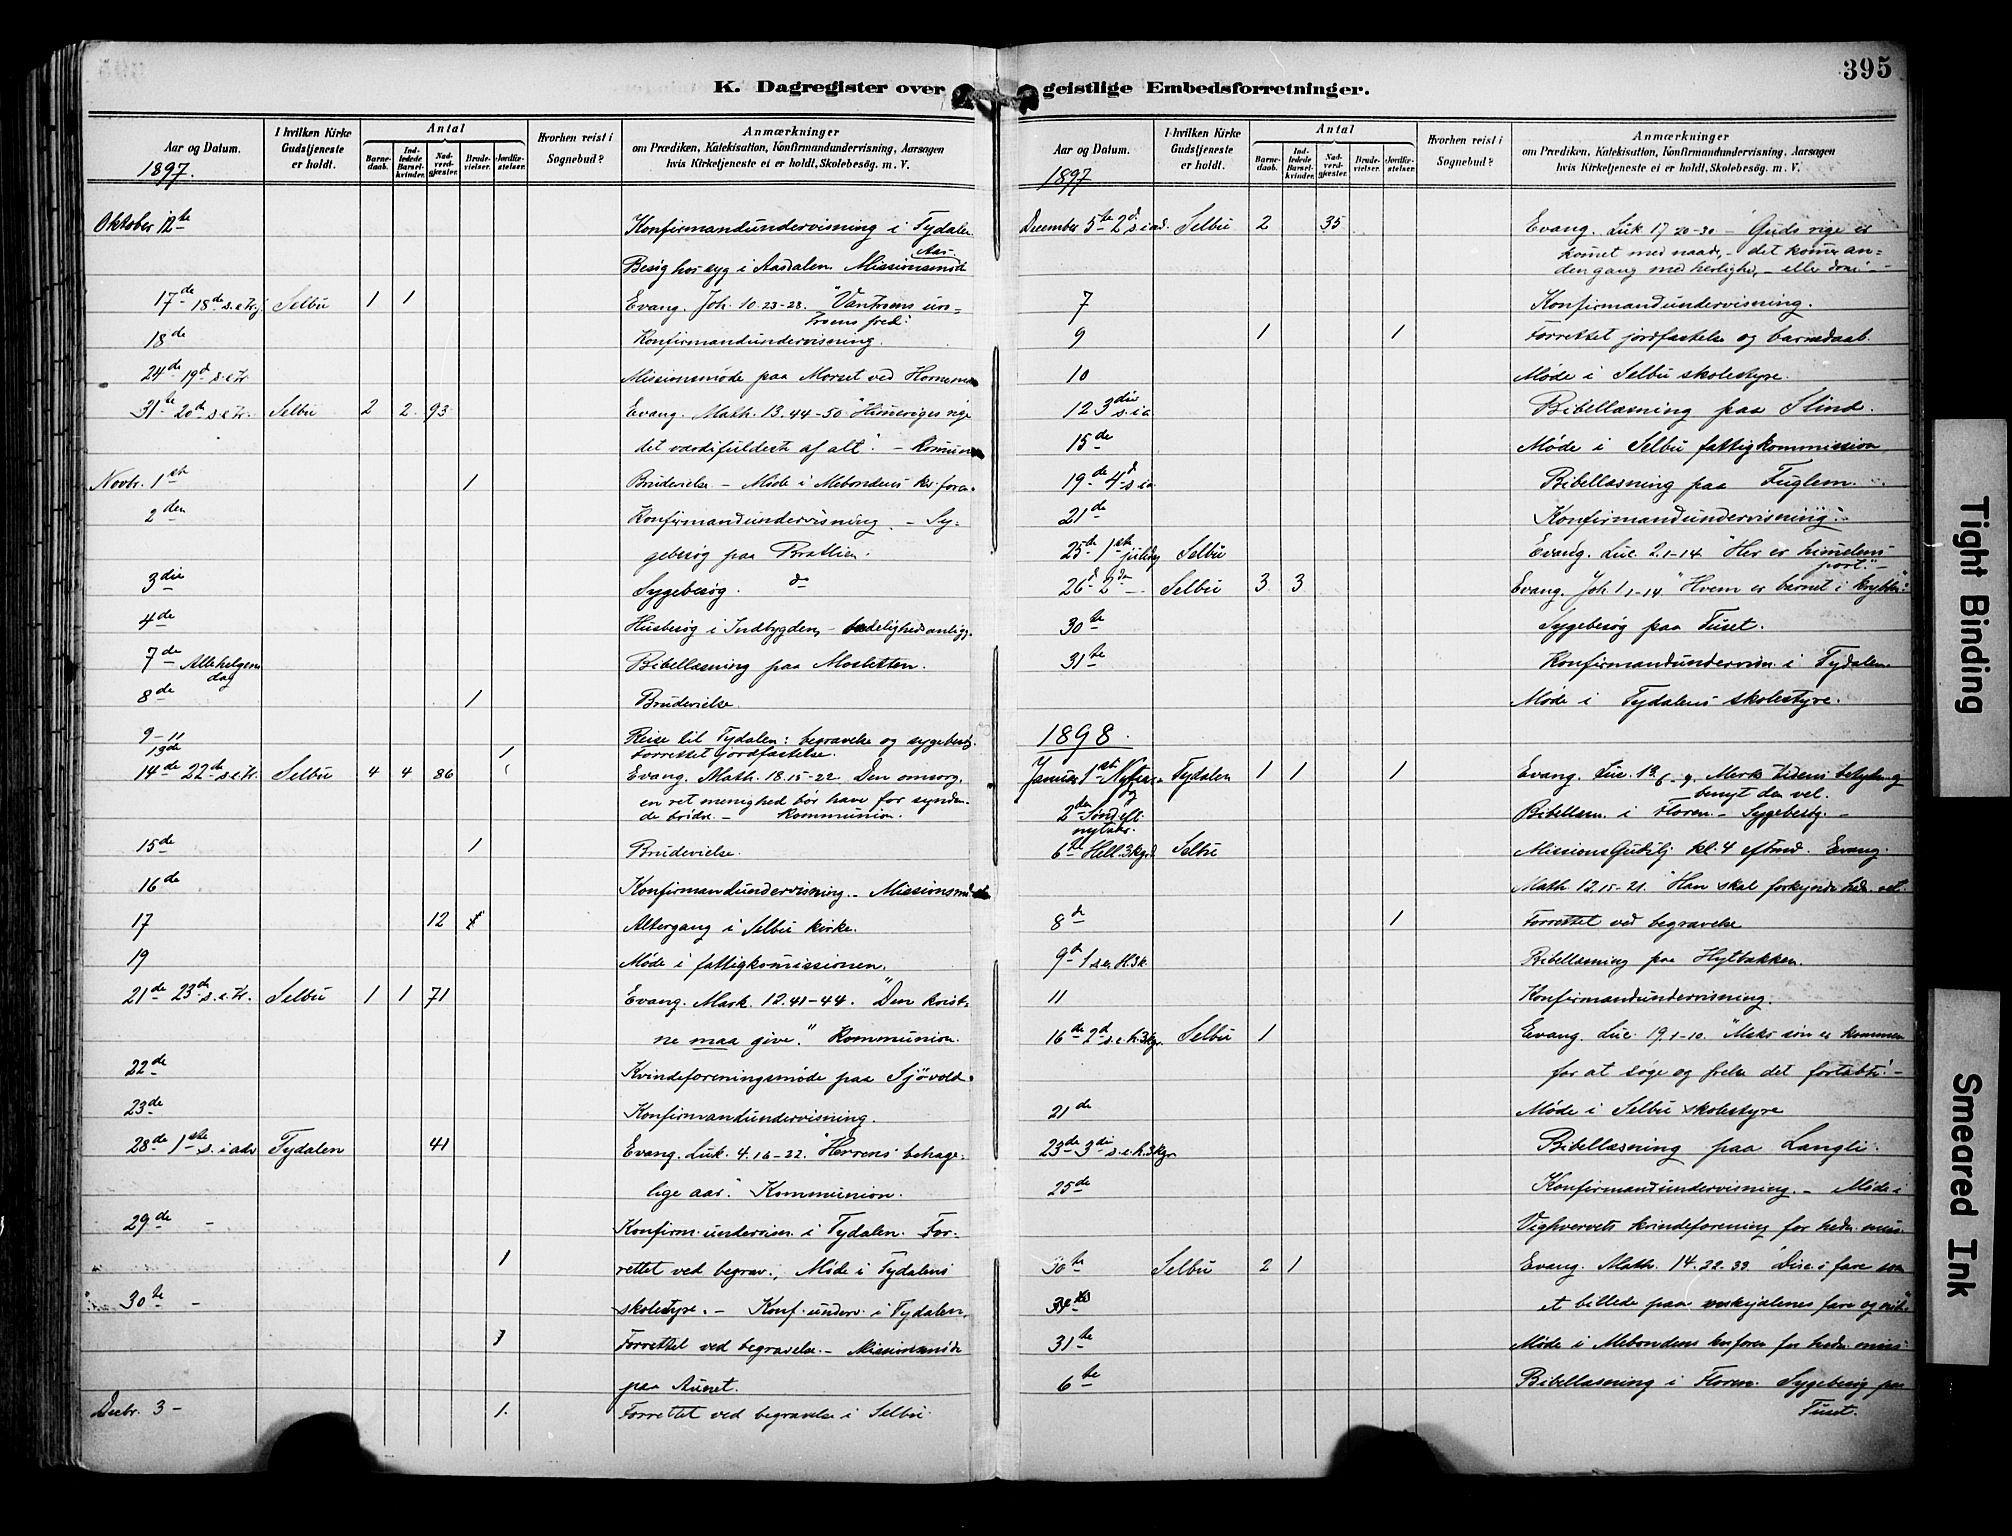 395
K. Dagregister over geistlige Embedsforretninger.
Aar og Datum.
I hvilken Kirke Gudstjeneste er holdt.
Antal
Barnedaab.
Indledede Barselkvinder.
Nadverdgjæster.
Brudevielser.
Jordfæstelser.
Hvorhen reist i Sognebud?
Anmærkninger
om Prædiken, Katekisation, Konfirmandundervisning, Aarsagen
hvis Kirketjeneste ei er holdt, Skolebesøg. m. V.
1897.
Oktober 12te Konfirmandundervisning i Tydalen
Besøg hos syg i Aasdalen Missionsmøde
17de 18de s.e.tr. Selbu 1 1 Evang. Joh. 10.23-28. "Vantroens uro-
troens fred".
18de Konfirmandundervisning.
24de 19d s.e.tr. Missionsmøde paa Morset ved
31te 20de s.e.tr. Selbu 2 2 93 Evang. Math. 13.44-50 "Himeriges rige
det værdifuldeste af alt". -
Novbr. 1ste 1 Brudevielse - Møde i Mebondens kv. foren.
2den Konfirmandundervisning. - Sy-
gebesøg paa Bratlien.
3die Sygebesøg. do
4de Husbesøg i Indbygden,
7de Allehelgens dag Bibellæsning paa Mosletten.
8de 1 Brudevielse.
9-11 Reise til Tydalen: begravelse og sygebesøg.
13de 1 Forrettet jordfæstelse.
14de 22de s.e.tr. Selbu 4 4 86 Evang. Math. 18.15-22 Den omsorg,
en ret menighed bør have for synden-
de brødre. - Kommunion.
15de 1 Brudevielse.
16de Konfirmandundervisning. - Missionsmøde
17 12 Altergang i Selbu kirke.
19 Møde i fattigkomissionen.
21de 23de s.e.tr. Selbu 1 1 71 Evang. Mark. 12.41-44. "Den krist-
ne maa give." Kommunion.
22de Kvindeforeningsmøde paa Sjøvold.
23de Konfirmandundervisning.
28de 1ste s. i adv Tydalen 41 Evang. Luk. 4.16-22. "Herrens behage-
lige aar." Kommunion.
29de - Konfirm. undervisn. i Tydalen. For-
1 rettet ved begrav., Møde i Tydalens
30te - skolestyre. - Konf. underv. i Tydalen.
1 Forrettet ved begravelse. - Missionsmøde
paa Aunet.
Decbr. 3 - 1. Forrettet ved begravelse i Selbu.
Aar og Datum.
I hvilken Kirke Gudstjeneste er holdt.
Antal
Barnedaab.
Indledede Barselkvinder.
Nadverdgjæster.
Brudevielser.
Jordfæstelser.
Hvorhen reist i Sognebud?
Anmærkninger
om Prædiken, Katekisation, Konfirmandundervisning, Aarsagen
hvis Kirketjeneste ei er holdt, Skolebesøg. m. V.
1897
December 5te 2d. s. i ad. Selbu 2 35 Evang. Luk. 17 20-30 - Guds rige er
komet med naade, - det komer an-
den gang med herlighed, - eller dom". -
7 Konfirmandundervisning.
9 1 1 Forrettet jordfæstelse og barnedaab.
10 Møde i Selbu skolestyre.
12 3die s. i a Bibellæsning paa Slind.
15de Møde i Selbu fattigkommission
19de 4d s. i a Bibellæsning paa Fuglem.
21de Konfirmandundervisning.
25de 1ste juledag Selbu Evang. Luc. 2.1-14 "Her er himelens
port." -
26d 2den - Selbu 3 3 Evang. Joh. 1 1-14 "Hvem er barnet i krybben".
30te Sygebesøg paa Tuset.
31te Konfirmandundervisn. i Tydalen
Møde i Tydalens skolestyre.
1898.
Januar 1ste Tydalen 1 1 1 Evang. Luc. 13 6-9. Merk tidens betydning
benyt den vel.
2den Sønd eft. nytaar. Bibellæsn. i Floren. - Sygebesøg. -
6te Hell. 3 kgrd Selbu kl. 4 eftmd. Evang.
Math. 12.15-21. "Han skal forkynde
8de 1 Forrettet ved begravelse
9de 1 s. e. H. 3 k. Bibellæsning paa Hytbakken.
11 Konfirmandundervisning.
16de 2d s. e. h. 3 kgr. Selbu 1 Evang. Luc. 19.1-10. "Msks søn er kommen
for at søge og frelse det fortabte". -
21de Møde i Selbu skolestyre
23de 3die s. e. h. 3 kgr Bibellæsning paa Langli.
25de Konfirmandundervisning. - Møde i
Vighvervets kvindeforening for hedn. miss.
30te Selbu 2 1 Evang. Math. 14.22-33 "Disc. i fare som
et billede paa fare og
31te Møde i Mebondens kv. foren for hedn. miss.
6te Bibellæsning i Floren. Sygebesøg paa
Tuset.
Tight Binding
Smeared Ink